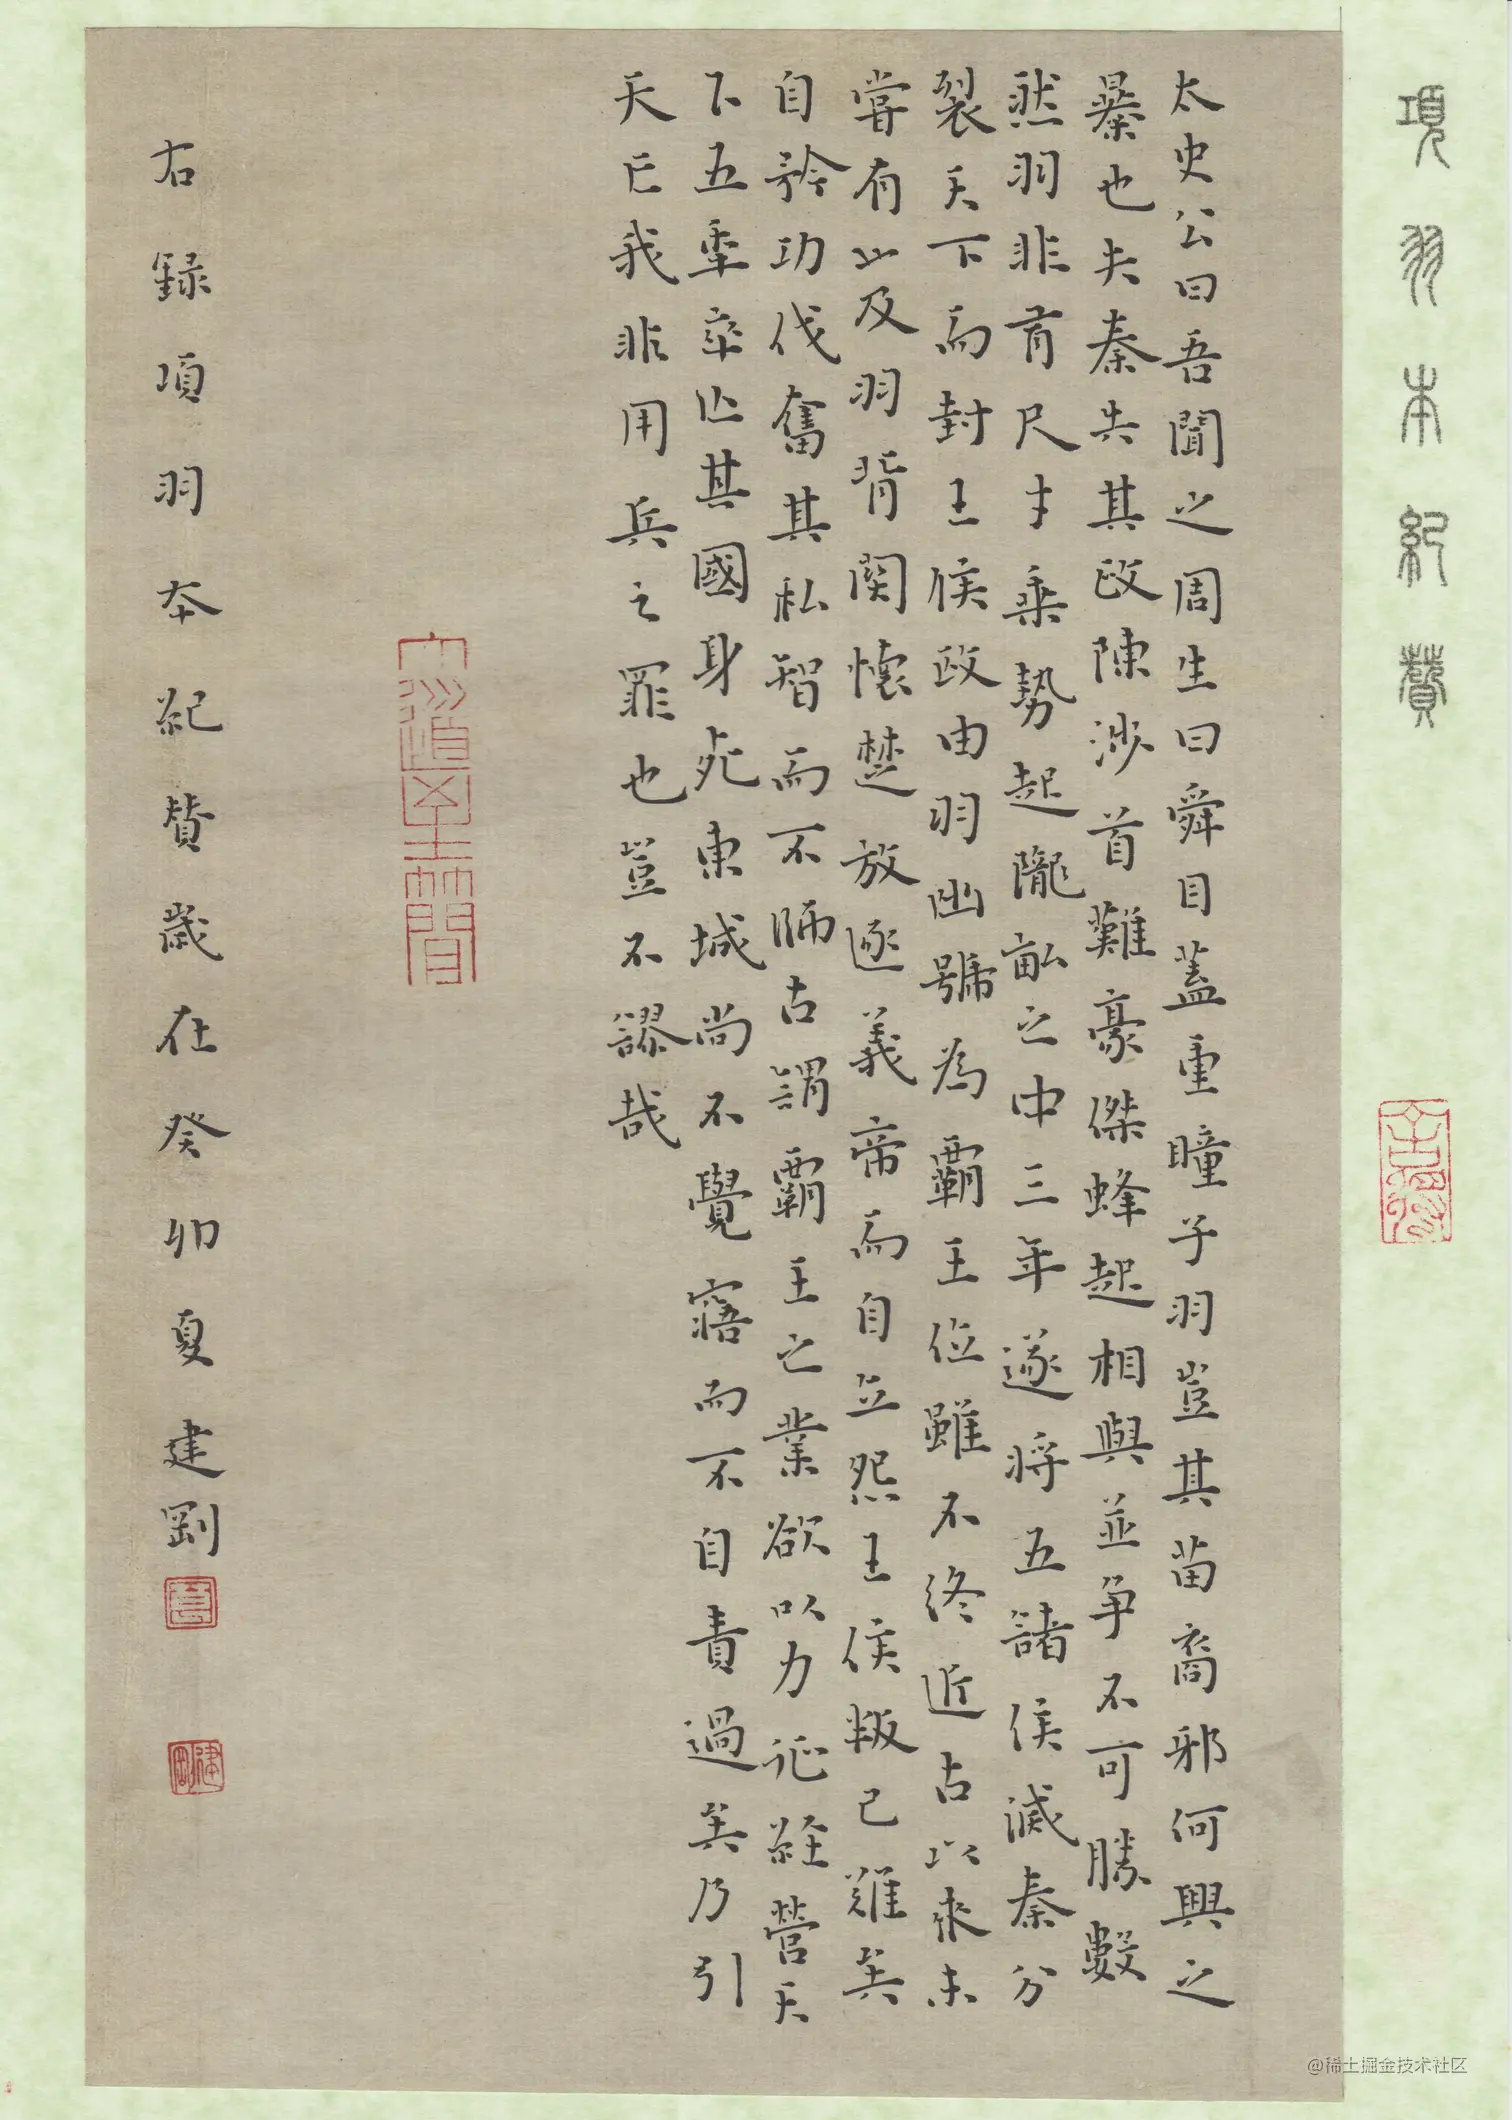 項羽本紀贊
太史公曰吾聞之周生曰舜目蓋重瞳子羽豈其苗裔邪何興之
暴也夫秦失其政陳涉首難豪傑蜂起相與並爭不可勝數
然羽非有尺寸乘勢起隴畝之中三年遂將五諸侯滅秦分
裂天下而封王侯政由羽出號為霸王位雖不終近古以來未
嘗有也及羽背關懷楚放逐義帝而自立怨王侯叛己難矣
自矜功伐奮其私智而不師古謂霸王之業欲以力征經營天
下五年卒亡其國身死東城尚不覺寤而不自責過矣乃引
天亡我非用兵之罪也豈不謬哉
右錄項羽本紀贊歲在癸卯夏建剛
建剛
@稀土掘金技术社区